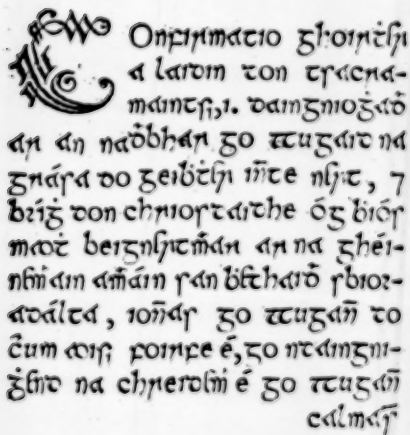 Confirmatio ghoirthí
a laidin don tsacra-
maintsi, .i. daingnioġaḋ
ar an naḋbhar go ttugaid na
grása do geibthí innte neart, ⁊
bríġ don chriostaidhe óg bíos
maoṫ beigneartmar ar na ghéi-
neamain amáin san beathaiḋ sbior-
adálta, ionnas go ttugann do
ċum aoisi foirfe é, go ndaingni-
ġeand na chreideam é go ttugann
calmas